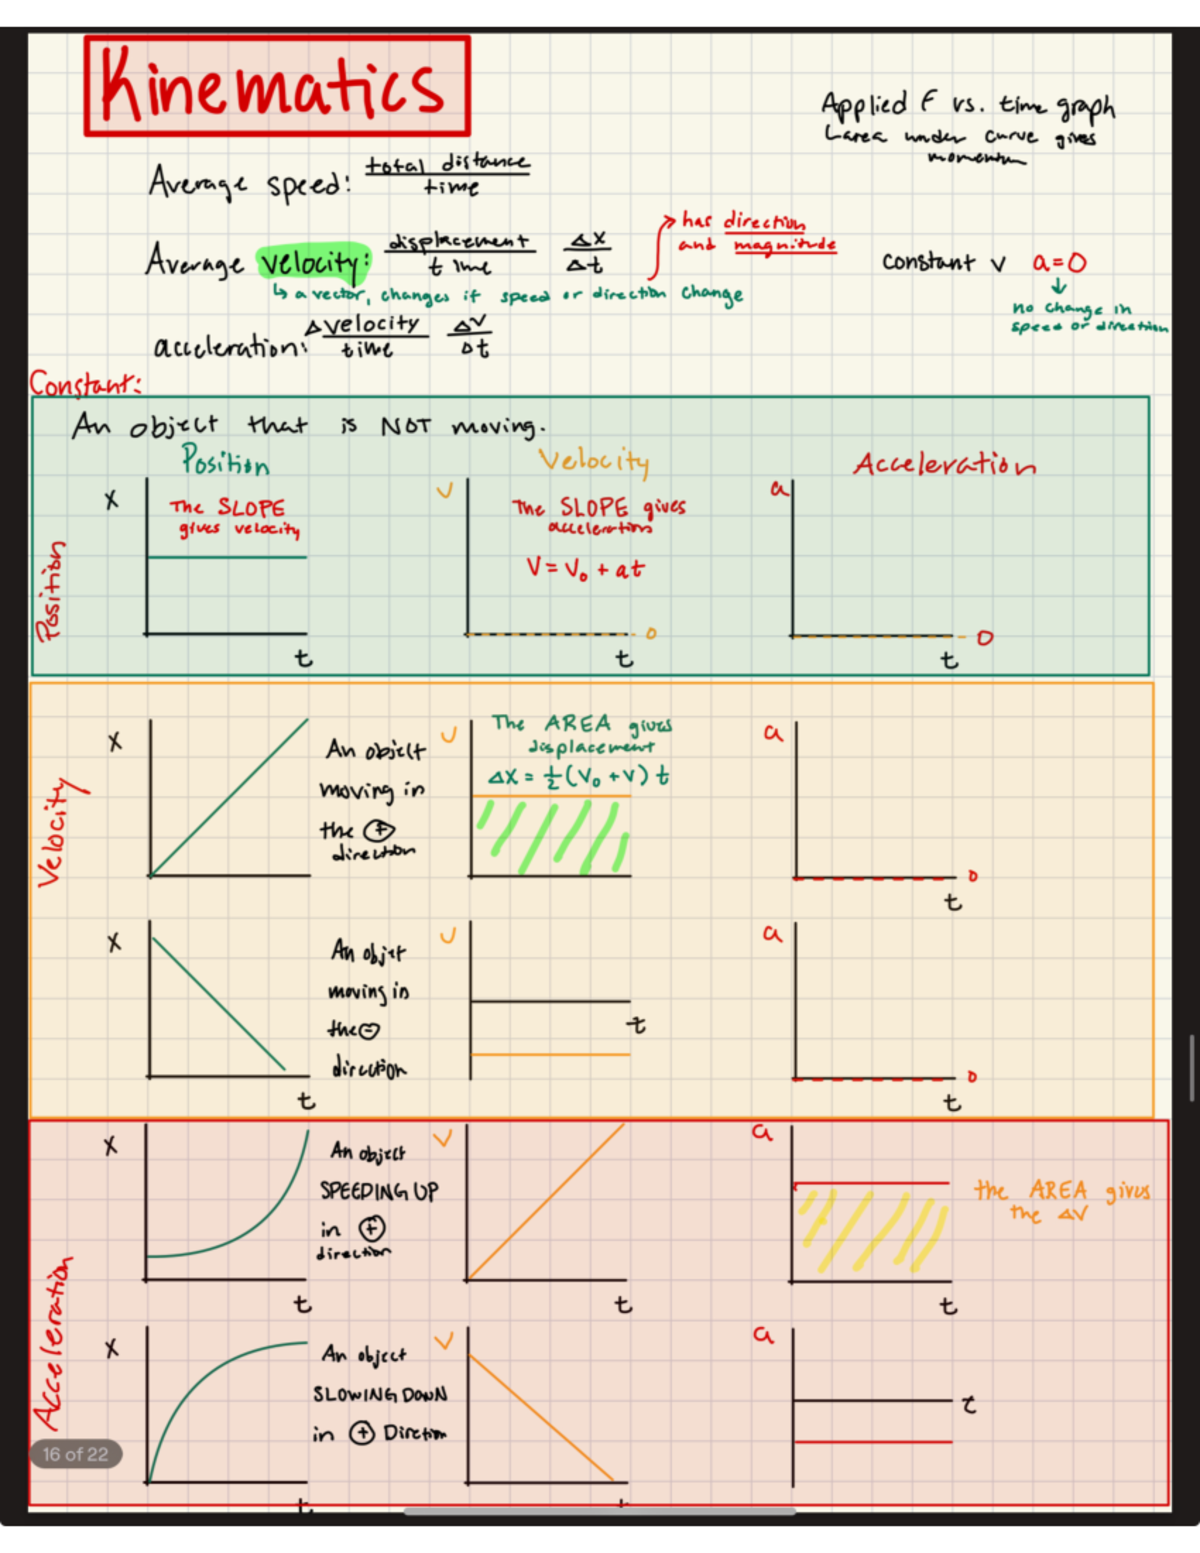 Kinematics
Applied F vs. time graph
↳area under curve gives
momentum
Average speed: total distance
time
→ has direction
and magnitude
Average velocity: displacement Δx
time Δt
constant v a=0
↳ a vector, changes if speed or direction change
↓
no change in
speed or direction
acceleration: Δvelocity Δv
time Δt
Constant:
An object that is NOT moving.
Position Velocity Acceleration
Position
x
The SLOPE
gives velocity
t
v
The SLOPE gives
acceleration
V = V₀ + at
0
t
a
0
t
Velocity
x
An object
moving in
the ⊕
direction
v
The AREA gives
displacement
Δx = ½(V₀ + V) t
a
0
t
x
An objet
moving in
the ⊖
direction
t
v
t
a
0
t
Acceleration
x
An object
SPEEDING UP
in ⊕
direction
t
v
t
a
the AREA gives
the ΔV
t
x
An object
SLOWING DOWN
in ⊕ Dirction
t
v
t
a
t
16 of 22